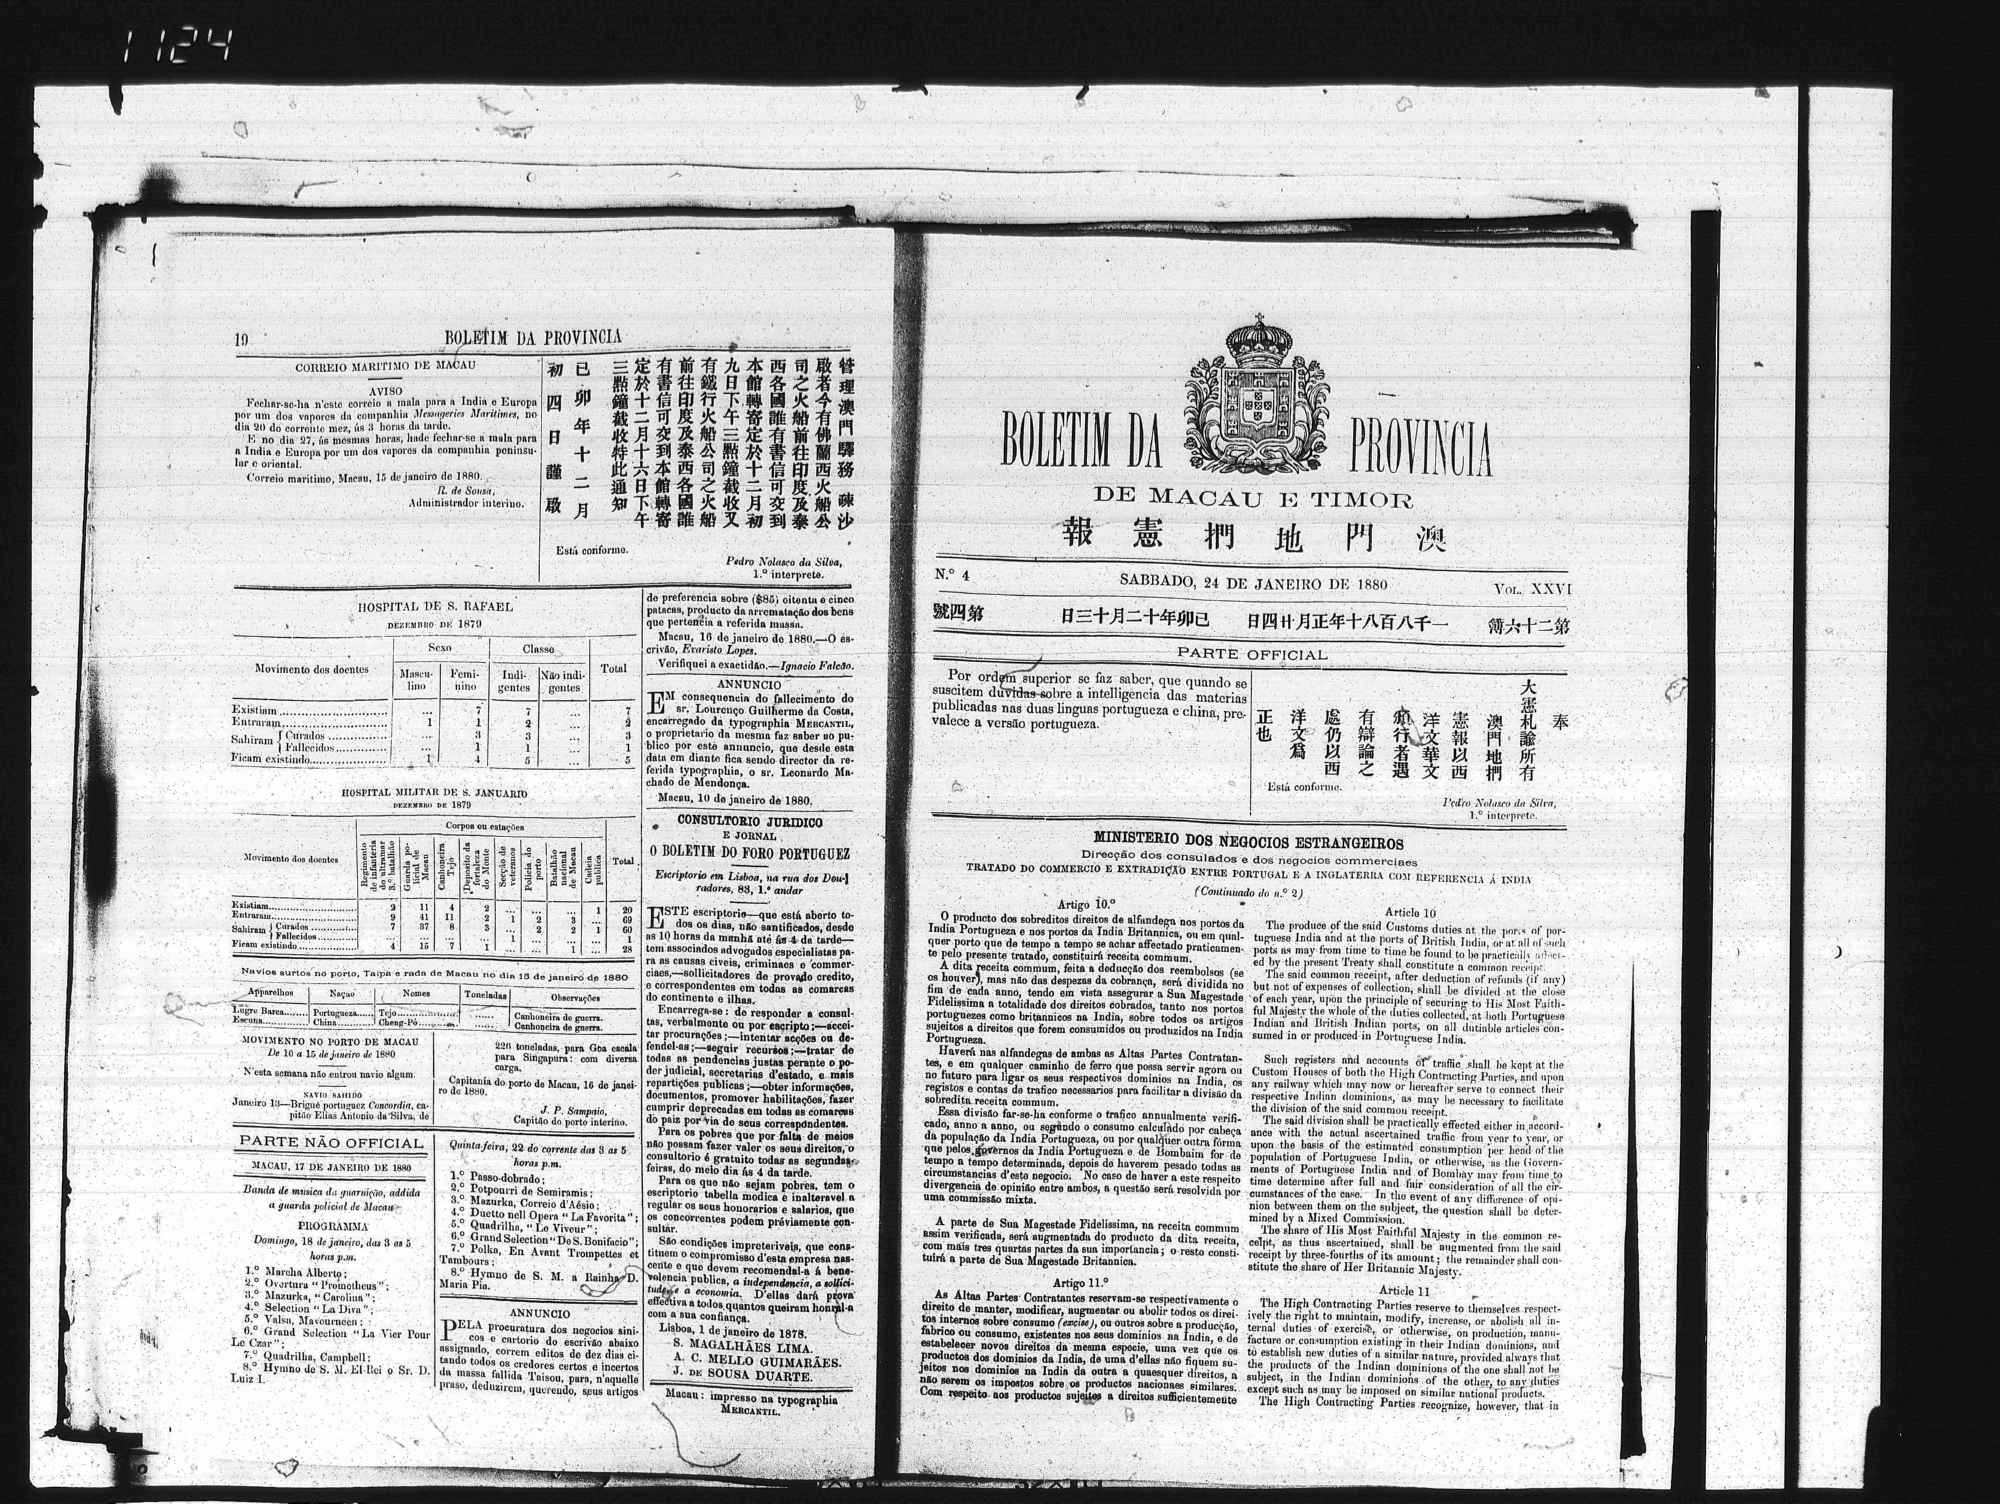 1124
19
BOLETIM DA PROVINCIA
CORREIO MARITIMO DE MACAU
AVISO
Fechar-se-ha n'este correio a mala para a India e Europa
por um dos vapores da companhia Messageries Maritimes, no
dia 20 do corrente mez, ás 3 horas da tarde.
E no dia 27, ás mesmas horas, hade fechar-se a mala para
a India e Europa por um dos vapores da companhia peninsu-
lar e oriental.
Correio maritimo, Macau, 15 de janeiro de 1880.
R. de Sousa,
Administrador interino.
管理澳門驛務疎沙
啟者今有佛蘭西火船公
司之火船前往印度及泰
西各國誰有書信可交到
本館轉寄定於十二月初
九日下午三點鐘截收又
有鐵行火船公司之火船
前往印度及泰西各國誰
有書信可交到本館轉寄
定於十二月十六日下午
三點鐘截收特此通知
已卯年十二月
初四日謹啟
Está conforme.
Pedro Nolasco da Silva,
1.º interprete.
HOSPITAL DE S. RAFAEL
DEZEMBRO DE 1879
Movimento dos doentes Sexo Classe Total
Mascu-lino Femi-nino Indi-gentes Não indi-gentes
Existiam ... 7 7 ... 7
Entraram 1 1 2 ... 2
Sahiram Curados ... 3 3 ... 3
Fallecidos ... 1 1 ... 1
Ficam existindo 1 4 5 ... 5
HOSPITAL MILITAR DE S. JANUARIO
DEZEMBRO DE 1879
Movimento dos doentes Corpos ou estações Total
Regimento de infanteria do ultramar 3.º batalhão Guarda policial de Macau Canhoneira Tejo Deposito da fortaleza do Monte Secção de veteranos Policia do porto Batalhão nacional de Macau Cadeia publica
Existiam 2 11 4 2 ... ... ... 1 20
Entraram 9 41 11 2 1 2 3 ... 69
Sahiram Curados 7 37 8 3 ... 2 2 1 60
Fallecidos ... ... ... ... 1 ... ... ... 1
Ficam existindo 4 15 7 1 ... ... 1 ... 28
Navios surtos no porto, Taipa e rada de Macau no dia 15 de janeiro de 1880
Apparelhos Nação Nomes Toneladas Observações
Lugre Barca Portugueza Tejo ...... Canhoneira de guerra.
Escuna China Cheng-Pó ...... Canhoneira de guerra.
MOVIMENTO NO PORTO DE MACAU
De 10 a 15 de janeiro de 1880
N'esta semana não entrou navio algum.
NAVIO SAHIDO
Janeiro 13—Brigue portuguez Concordia, ca-
pitão Elias Antonio da Silva, de
226 toneladas, para Goa escala
para Singapura: com diversa
carga.
Capitania do porto de Macau, 16 de janei-
ro de 1880.
J. P. Sampaio,
Capitão do porto interino.
PARTE NÃO OFFICIAL
MACAU, 17 DE JANEIRO DE 1880
Banda de musica da guarnição, addida
a guarda policial de Macau
PROGRAMMA
Domingo, 18 de janeiro, das 3 as 5
horas p.m.
1.º Marcha Alberto;
2.º Overtura "Prometheus";
3.º Mazurka, "Carolina";
4.º Selection "La Diva";
5.º Valsa, Mavourneen;
6.º Grand Selection "La Vier Pour
Le Czar";
7.º Quadrilha, Campbell;
8.º Hymno de S. M. El-Rei o Sr. D.
Luiz I.
Quinta-feira, 22 do corrente das 3 as 5
horas p.m.
1.º Passo-dobrado;
2.º Potpourri de Semiramis;
3.º Mazurka, Correio d'Aésio;
4.º Duetto nell Opera "La Favorita";
5.º Quadrilha, "Le Viveur";
6.º Grand Selection "De S. Bonifacio";
7.º Polka, En Avant Trompettes et
Tambours;
8.º Hymno de S. M. a Rainha D.
Maria Pia.
ANNUNCIO
PELA procuratura dos negocios sini-
cos e cartorio do escrivão abaixo
assignado, correm editos de dez dias ci-
tando todos os credores certos e incertos
da massa fallida Taisou, para, n'aquelle
praso, deduzirem, querendo, seus artigos
de preferencia sobre ($85) oitenta e cinco
patacas, producto da arrematação dos bens
que pertencia a referida massa.
Macau, 16 de janeiro de 1880.—O es-
crivão, Evaristo Lopes.
Verifiquei a exactidão.—Ignacio Falcão.
ANNUNCIO
EM consequencia do fallecimento do
sr. Lourenço Guilherme da Costa,
encarregado da typographia MERCANTIL,
o proprietario da mesma faz saber ao pu-
blico por este annuncio, que desde esta
data em diante fica sendo director da re-
ferida typographia, o sr. Leonardo Ma-
chado de Mendonça.
Macau, 10 de janeiro de 1880.
CONSULTORIO JURIDICO
E JORNAL
O BOLETIM DO FORO PORTUGUEZ
Escriptorio em Lisboa, na rua dos Dou-
radores, 83, 1.º andar
ESTE escriptorio—que está aberto to-
dos os dias, não santificados, desde
as 10 horas da manhã até ás 4 da tarde—
tem associados advogados especialistas pa-
ra as causas civeis, criminaes e commer-
ciaes,—sollicitadores de provado credito,
e correspondentes em todas as comarcas
do continente e ilhas.
Encarrega-se: de responder a consul-
tas, verbalmente ou por escripto;—accei-
tar procurações;—intentar acções ou de-
fendel-as;—seguir recursos;—tratar de
todas as pendencias justas perante o po-
der judicial, secretarias d'estado, e mais
repartições publicas;—obter informações,
documentos, promover habilitações, fazer
cumprir deprecadas em todas as comarcas
do paiz por via de seus correspondentes.
Para os pobres que por falta de meios
não possam fazer valer os seus direitos, o
consultorio é gratuito todas as segundas-
feiras, do meio dia ás 4 da tarde.
Para os que não sejam pobres, tem o
escriptorio tabella modica e inalteravel a
regular os seus honorarios e salarios, que
os concorrentes podem préviamente con-
sultar.
São condições impreteriveis, que cons-
tituem o compromisso d'esta empresa nas-
cente e que devem recomendal-a á bene-
volencia publica, a independencia, a sollici-
tude e a economia. D'ellas dará prova
effectiva a todos quantos queiram honral-a
com a sua confiança.
Lisboa, 1 de janeiro de 1878.
S. MAGALHÃES LIMA.
A. C. MELLO GUIMARÃES.
J. DE SOUSA DUARTE.
Macau: impresso na typographia
MERCANTIL.
BOLETIM DA PROVINCIA
DE MACAU E TIMOR
報憲捫地門澳
N.º 4
SABBADO, 24 DE JANEIRO DE 1880
VOL. XXVI
號四第 日三十月二十年卯已 日四廿月正年十八百八千一 簿六十二第
PARTE OFFICIAL
Por ordem superior se faz saber, que quando se
suscitem duvidas sobre a intelligencia das materias
publicadas nas duas linguas portugueza e china, pre-
valece a versão portugueza.
奉
大憲札諭所有
澳門地捫
憲報以西
洋文華文
頒行者遇
有辯論之
處仍以西
洋文爲
正也
Está conforme.
Pedro Nolasco da Silva,
1.º interprete.
MINISTERIO DOS NEGOCIOS ESTRANGEIROS
Direcção dos consulados e dos negocios commerciaes
TRATADO DO COMMERCIO E EXTRADIÇÃO ENTRE PORTUGAL E A INGLATERRA COM REFERENCIA Á INDIA
(Continuado do n.º 2)
Artigo 10.º
O producto dos sobreditos direitos de alfandega nos portos da
India Portugueza e nos portos da India Britannica, ou em qual-
quer porto que de tempo a tempo se achar affectado praticamen-
te pelo presente tratado, constituirá receita commum.
A dita receita commum, feita a deducção dos reembolsos (se
os houver), mas não das despezas da cobrança, será dividida no
fim de cada anno, tendo em vista assegurar a Sua Magestade
Fidelissima a totalidade dos direitos cobrados, tanto nos portos
portuguezes como britannicos na India, sobre todos os artigos
sujeitos a direitos que forem consumidos ou produzidos na India
Portugueza.
Haverá nas alfandegas de ambas as Altas Partes Contratan-
tes, e em qualquer caminho de ferro que possa servir agora ou
no futuro para ligar os seus respectivos dominios na India, os
registos e contas de trafico necessarios para facilitar a divisão da
sobredita receita commum.
Essa divisão far-se-ha conforme o trafico annualmente verifi-
cado, anno a anno, ou segundo o consumo calculado por cabeça
da população da India Portugueza, ou por qualquer outra fórma
que pelos governos da India Portugueza e de Bombaim for de
tempo a tempo determinada, depois de haverem pesado todas as
circumstancias d'este negocio. No caso de haver a este respeito
divergencia de opinião entre ambos, a questão será resolvida por
uma commissão mixta.
A parte de Sua Magestade Fidelissima, na receita commum
assim verificada, será augmentada do producto da dita receita,
com mais tres quartas partes da sua importancia; o resto consti-
tuirá a parte de Sua Magestade Britannica.
Artigo 11.º
As Altas Partes Contratantes reservam-se respectivamente o
direito de manter, modificar, augmentar ou abolir todos os direi-
tos internos sobre consumo (excise), ou outros sobre a producção,
fabrico ou consumo, existentes nos seus dominios na India, e de
estabelecer novos direitos da mesma especie, uma vez que os
productos dos dominios da India, de uma d'ellas não fiquem su-
jeitos nos dominios na India da outra a quaesquer direitos, a
não serem os impostos sobre os productos nacionaes similares.
Com respeito aos productos sujeitos a direitos sufficientemente
Article 10
The produce of the said Customs duties at the ports of por-
tuguese India and at the ports of British India, or at all of such
ports as may from time to time be found to be practically affect-
ed by the present Treaty shall constitute a common receipt.
The said common receipt, after deduction of refunds (if any)
but not of expenses of collection, shall be divided at the close
of each year, upon the principle of securing to His Most Faith-
ful Majesty the whole of the duties collected, at both Portuguese
Indian and British Indian ports, on all dutiable articles con-
sumed in or produced in Portuguese India.
Such registers and accounts of traffic shall be kept at the
Custom Houses of both the High Contracting Parties, and upon
any railway which may now or hereafter serve to connect their
respective Indian dominions, as may be necessary to facilitate
the division of the said common receipt.
The said division shall be practically effected either in accord-
ance with the actual ascertained traffic from year to year, or
upon the basis of the estimated consumption per head of the
population of Portuguese India, or otherwise, as the Govern-
ments of Portuguese India and of Bombay may from time to
time determine after full and fair consideration of all the cir-
cumstances of the case. In the event of any difference of opi-
nion between them on the subject, the question shall be deter-
mined by a Mixed Commission.
The share of His Most Faithful Majesty in the common re-
ceipt, as thus ascertained, shall be augmented from the said
receipt by three-fourths of its amount; the remainder shall con-
stitute the share of Her Britannic Majesty.
Article 11
The High Contracting Parties reserve to themselves respect-
ively the right to maintain, modify, increase, or abolish all in-
ternal duties of exercise, or otherwise, on production, manu-
facture or consumption existing in their Indian dominions, and
to establish new duties of a similar nature, provided always that
the products of the Indian dominions of the one shall not be
subject, in the Indian dominions of the other, to any duties
except such as may be imposed on similar national products.
The High Contracting Parties recognize, however, that in